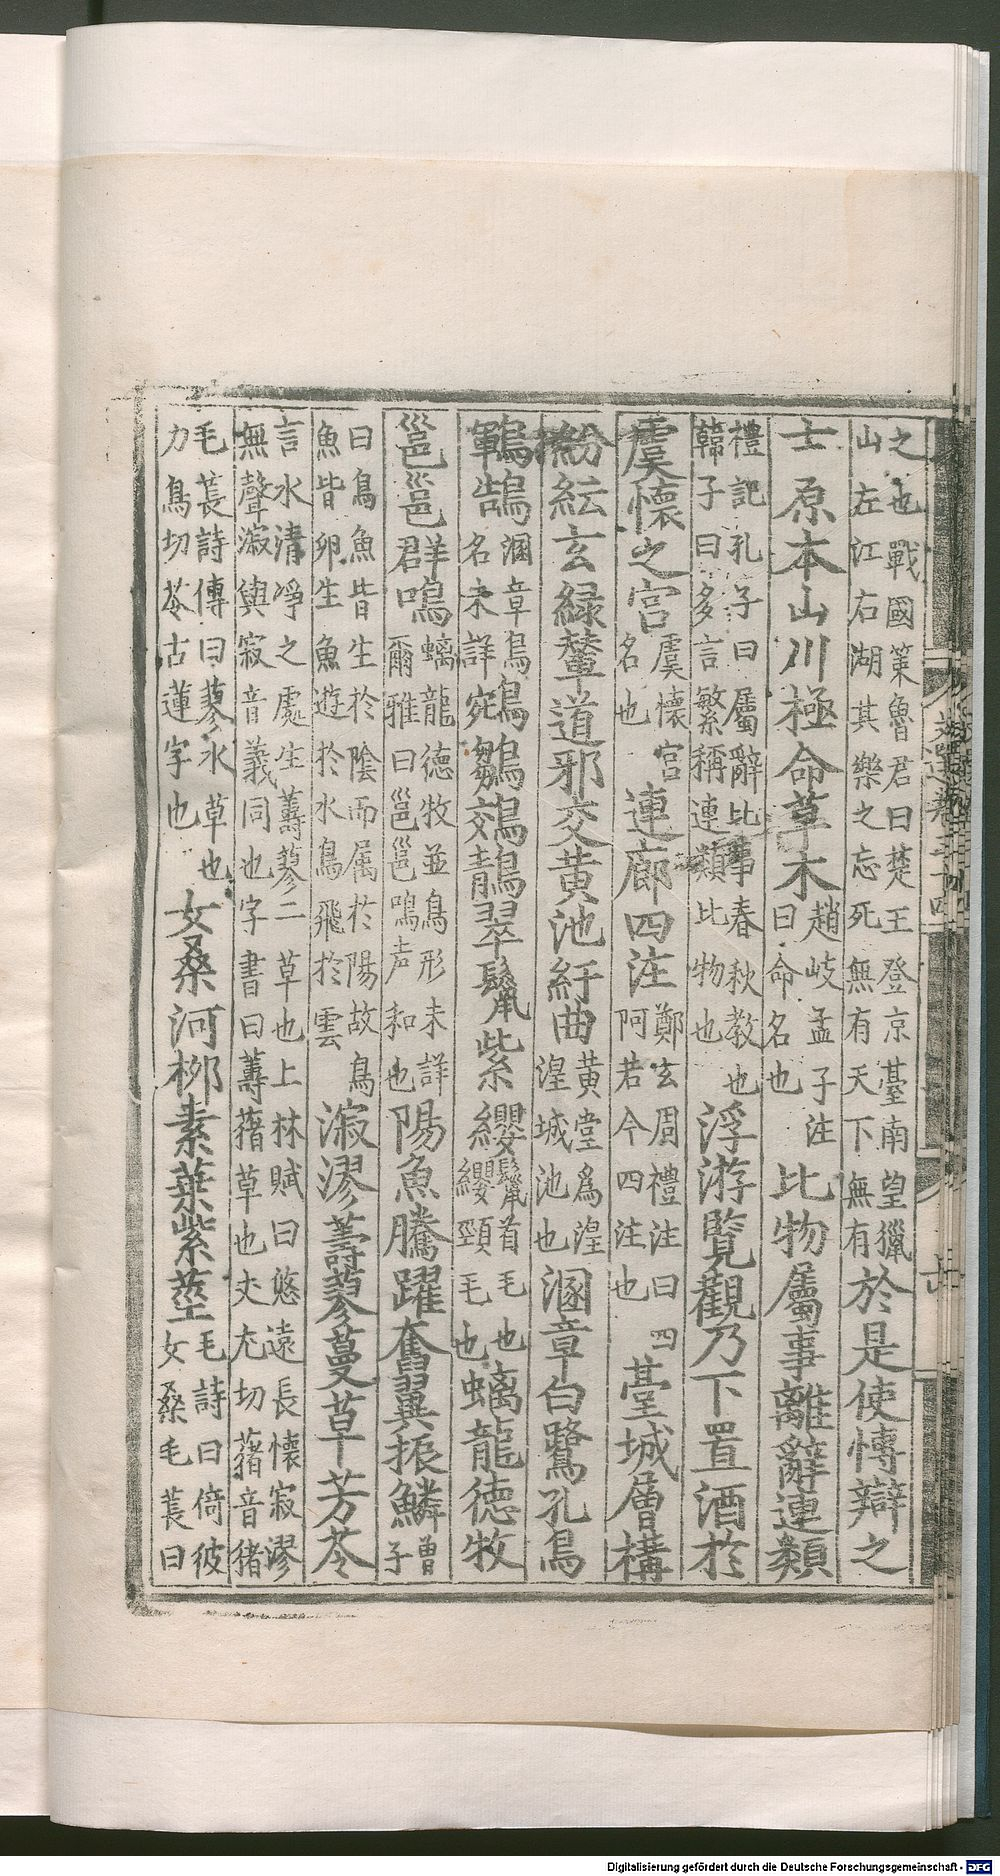 之也戰國策魯君曰楚王登京臺南望獵
山左江右湖其樂之忘死無有天下無有於是使愽辯之
士原本山川極命草木趙岐孟子注
曰命名也比物屬事離辭連類
禮記孔子曰屬辭比事春秋教也
韓子曰多言繁稱連類比物也浮游覽觀乃下置酒於
虞懷之宮虞懷宮
名也連廊四注鄭玄周禮注曰四
阿若今四注也臺城層構
紛紜玄緑輦道邪交黄池紆曲黄堂爲湟
湟城池也溷章白鷺孔鳥
鶤鵠溷章鳥
名未詳宛鶵鵁鶄翠鬣紫纓鬣首毛也
纓頸毛也螭龍德牧
邕邕群鳴螭龍德牧並鳥形未詳
爾雅曰邕邕鳴声和也陽魚騰躍奮翼振鱗曾
子
曰鳥魚皆生於陰而属於陽故鳥
魚皆卵生魚遊於水鳥飛於雲漃漻薵蓼蔓草芳苓
言水清凈之處生薵蓼二草也上林賦曰悠遠長懷寂漻
無聲漃與寂音義同也字書曰薵藸草也丈尤切藸音猪
毛萇詩傳曰蓼水草也
力鳥切苓古蓮字也女桑河柳素葉紫莖毛詩曰倚彼
女桑毛萇曰
Digitalisierung gefördert durch die Deutsche Forschungsgemeinschaft - DFG